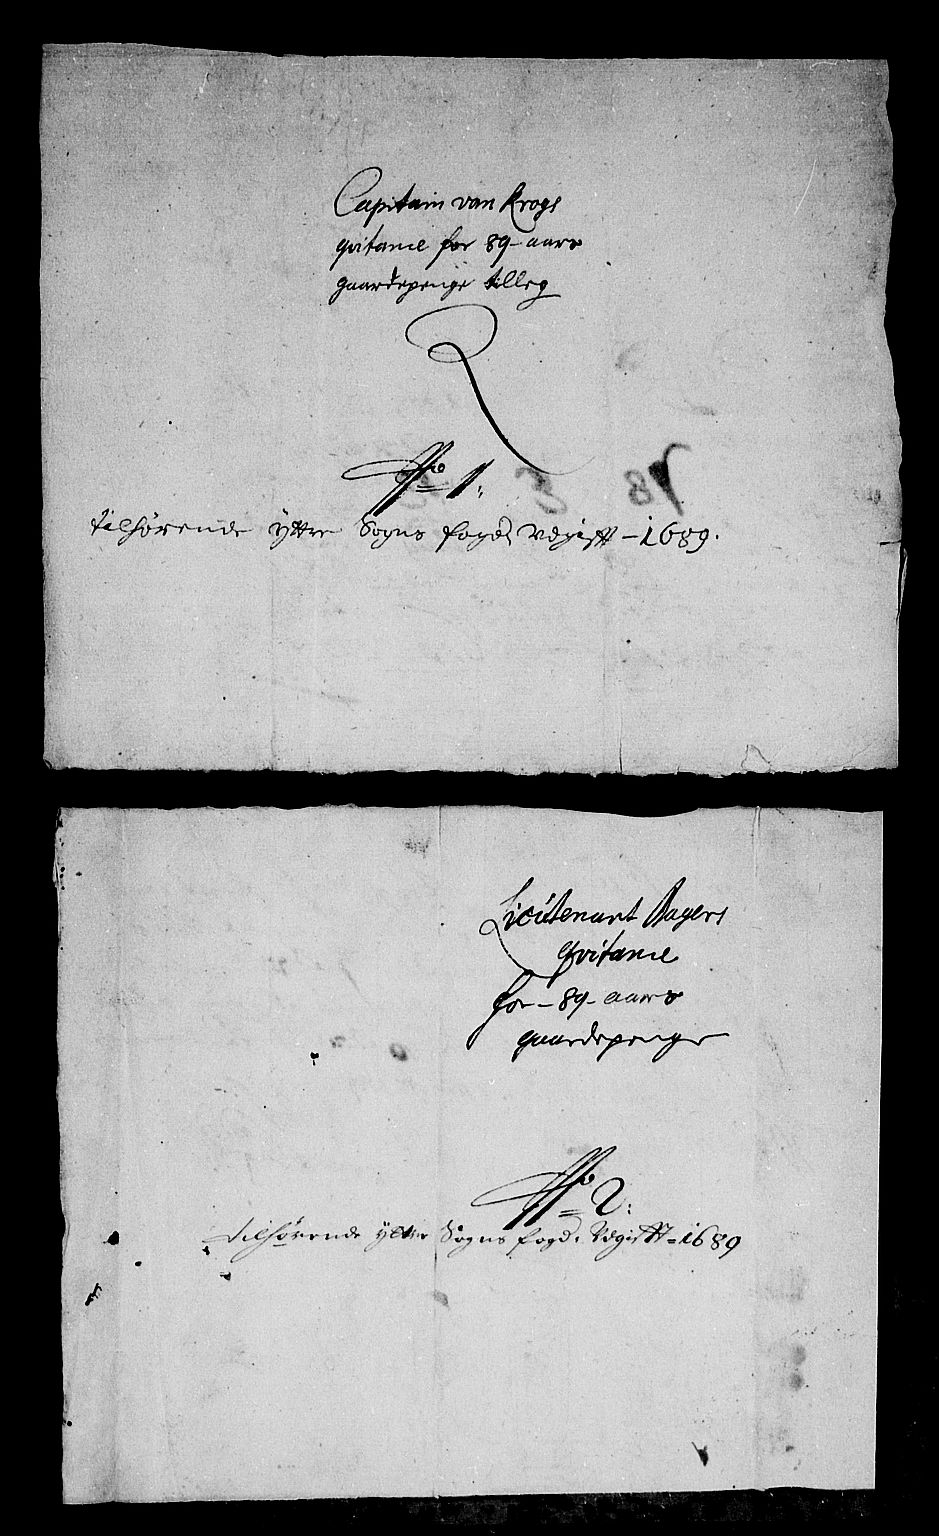 Capitain van Krogs
qvitance for 89-aars
gaardepenge tilleg
No 1:
tilhørende ÿttre Sogns fogd Udgifft - 1689.
Lieutenant Bagers
Qvitance
for - 89 - aars
gaardepenge
No 2:
tilhørende ÿttre Sogns fogd. Udgifft - 1689